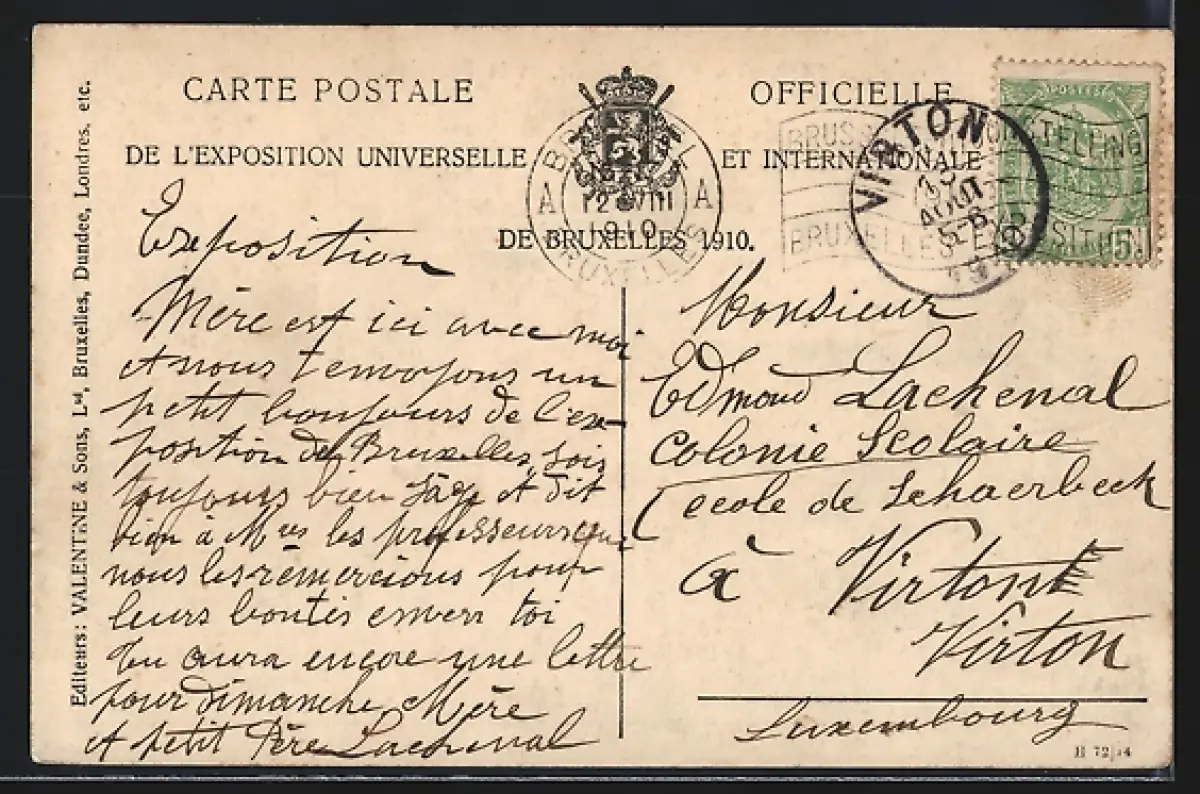 CARTE POSTALE OFFICIELLE
DE L'EXPOSITION UNIVERSELLE ET INTERNATIONALE
DE BRUXELLES 1910.
BRUSSEL
A 12 VIII A
1910
BRUXELLES
BRUXELLES
VIRTON
13
AOUT
5-8
1910
POSTES
5
Editeurs: VALENTINE & Sons, Ltd, Bruxelles, Dundee, Londres, etc.
Exposition
Mère est ici avec moi
et nous t'envoyons un
petit bonjours de l'ex-
position de Bruxelles sois
toujours bien sage et dit
bien à Mrs les professeurs que
nous les remercions pour
leurs bontés envers toi
tu aura encore une lettre
pour Dimanche Mère
et petit Père Lachenal
Monsieur
Edmond Lachenal
Colonie Scolaire
(ecole de Schaerbeek
à Virton
Virton
Luxembourg
H 72/14